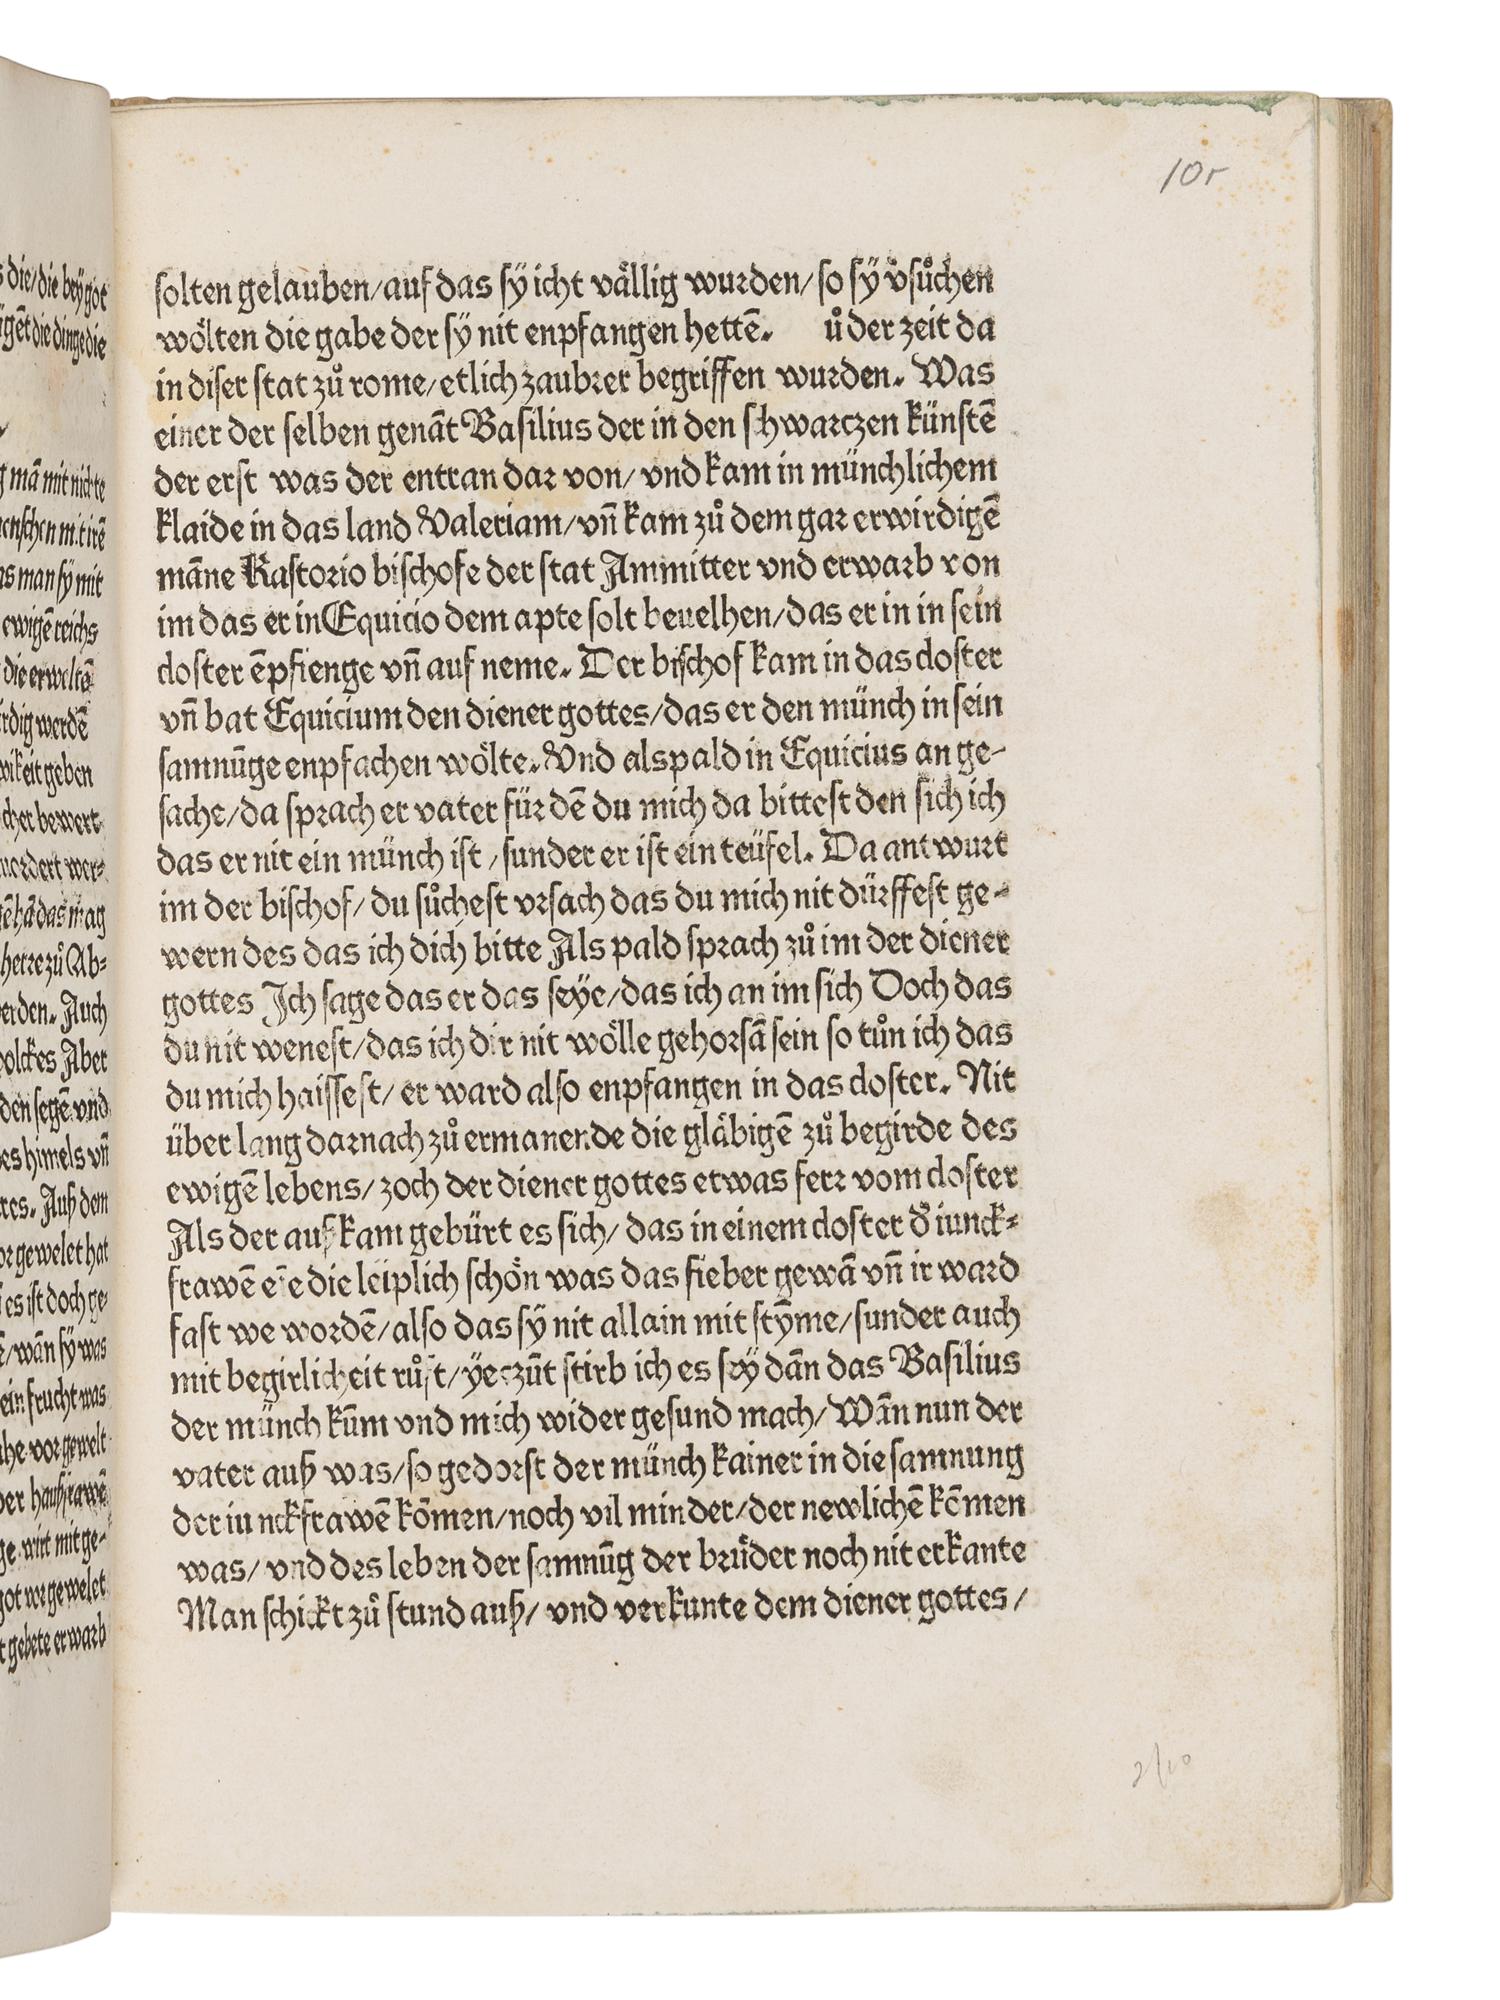 10r
solten gelauben/auf das sÿ icht vällig wurden/so sÿ v̄sůchen
wölten die gabe der sÿ nit enpfangen hettē. ů der zeit da
in diser stat zů rome/etlich zaubrer begriffen wurden. Was
einer der selben genāt Basilius der in den schwarczen künstē
der erst was der entran dar von/vnd kam in münchlichem
klaide in das land Valeriam/vn̄ kam zů dem gar erwirdigē
māne Kastorio bischofe der stat Ammitter vnd erwarb von
im das er in Equicio dem apte solt beuelhen/das er in in sein
closter ēpfienge vn̄ auf neme. Der bischof kam in das closter
vn̄ bat Equicium den diener gottes/das er den münch in sein
samnūge enpfachen wölte. Vnd als pald in Equicius an ge-
sache/da sprach er vater für dē du mich da bittest den sich ich
das er nit ein münch ist/sunder er ist ein teüfel. Da antwurt
im der bischof/du sůchest vrsach das du mich nit dürffest ge-
wern des das ich dich bitte Als pald sprach zů im der diener
gottes Ich sage das er das seÿe/das ich an im sich Doch das
du nit wenest/das ich dir nit wölle gehorsā sein so tůn ich das
du mich haissest/er ward also enpfangen in das closter. Nit
über lang darnach zů ermanende die gläbigē zů begirde des
ewigē lebens/zoch der diener gottes etwas ferr vom closter
Als der auß kam gebürt es sich/das in einem closter d̄ iunck-
frawē eīe die leiplich schön was das fieber gewā vn̄ ir ward
fast we wordē/also das sÿ nit allain mit stȳme/sunder auch
mit begirlicheit růft/ÿeczūt stirb ich es seÿ dān das Basilius
der münch kūm vnd mich wider gesund mach/Wān nun der
vater auß was/so gedorst der münch kainer in die samnung
der iunckfrawē kōmen/noch vil minder/der newlichē kōmen
was/vnd des leben der samnūg der brüder noch nit erkante
Man schickt zů stund auß/vnd verkunte dem diener gottes/
2/10